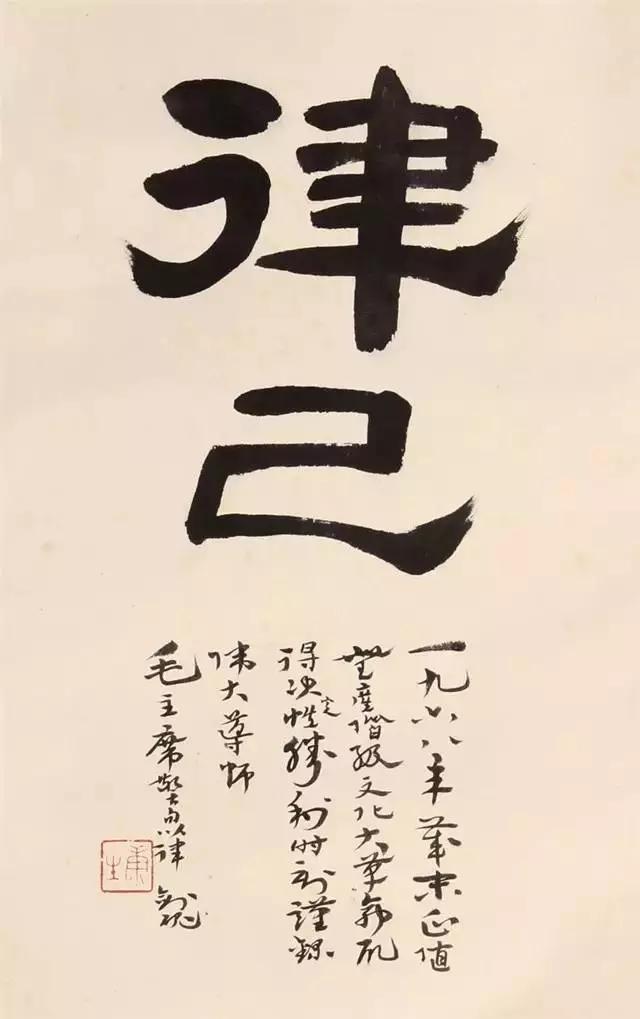 律己
一九六八年歲末正值
無產階級文化大革命取
得決定性勝利時刻謹録
偉大導師
毛主席警句以律
康生